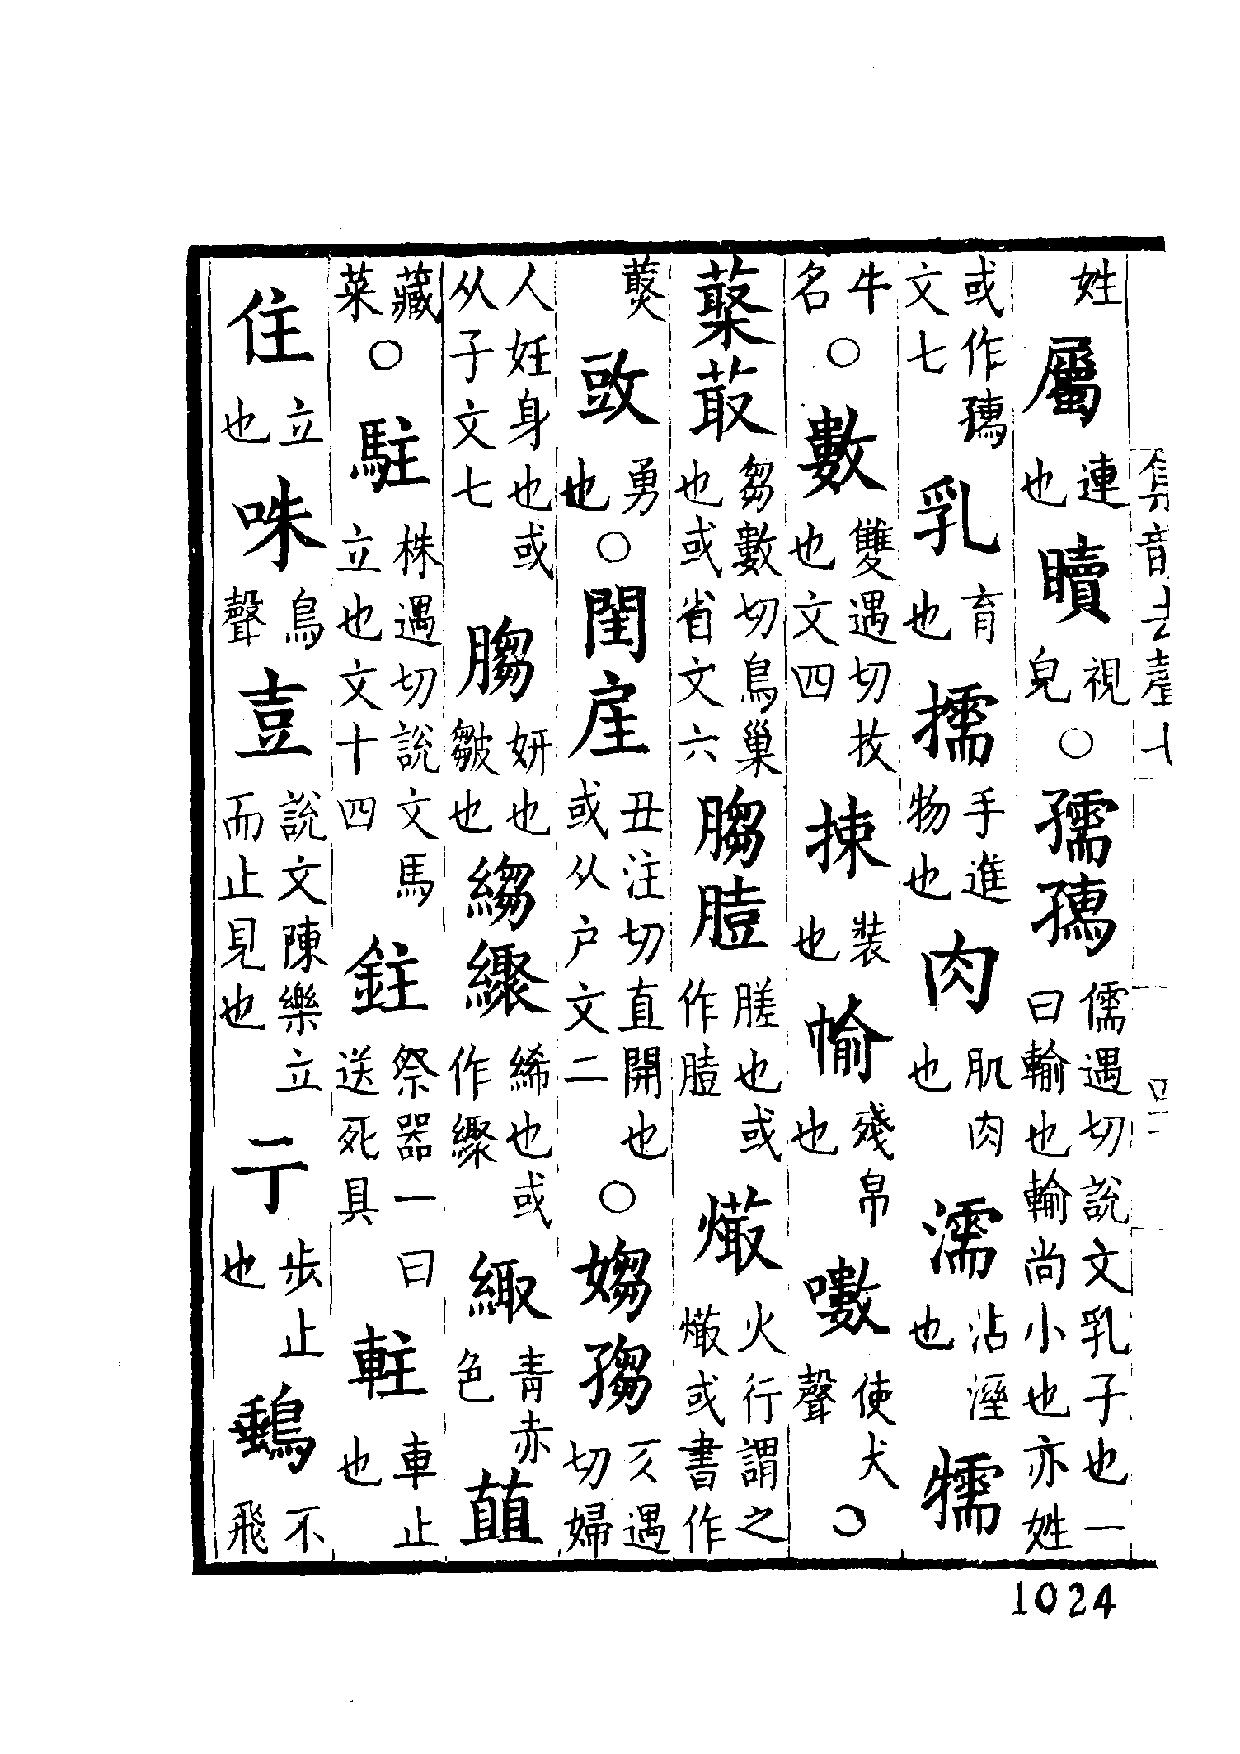 姓屬連也贖視皃○孺𡦗儒遇切說文乳子也一曰輸也輸尚小也亦姓
或作𡦗文七乳育也擩手進物也肉肌肉也濡沾溼也犡
牛名○數雙遇切枚也文四捒裝也㡏殘帛也嗾使犬聲○
菆芻數切鳥巢也或省文六膒膄也或作火行謂之或書作
㪇勇也○閏丑注切直開也或从戶文二○媰㛀仄遇切婦
人妊身也或从子文七䐢妍也皺也縐繠絺也或作繠緅青赤色蒩
藏菜○駐株遇切說文馬立也文十四鉒祭器一曰送死具軴車止也
住立也咮鳥聲壴說文陳樂立而止見也亍步止也鵽不飛
集韻去聲七
四二
1024